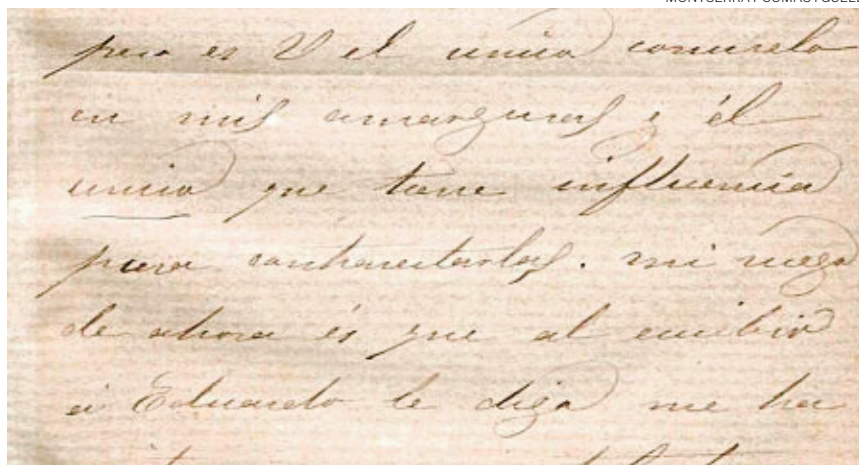 pero es V el unico consuelo
en mis amarguras y él
unico que tiene influencia
para contrarestarlas. mi ruego
de ahora és que al escribir
a Eduardo le diga me ha